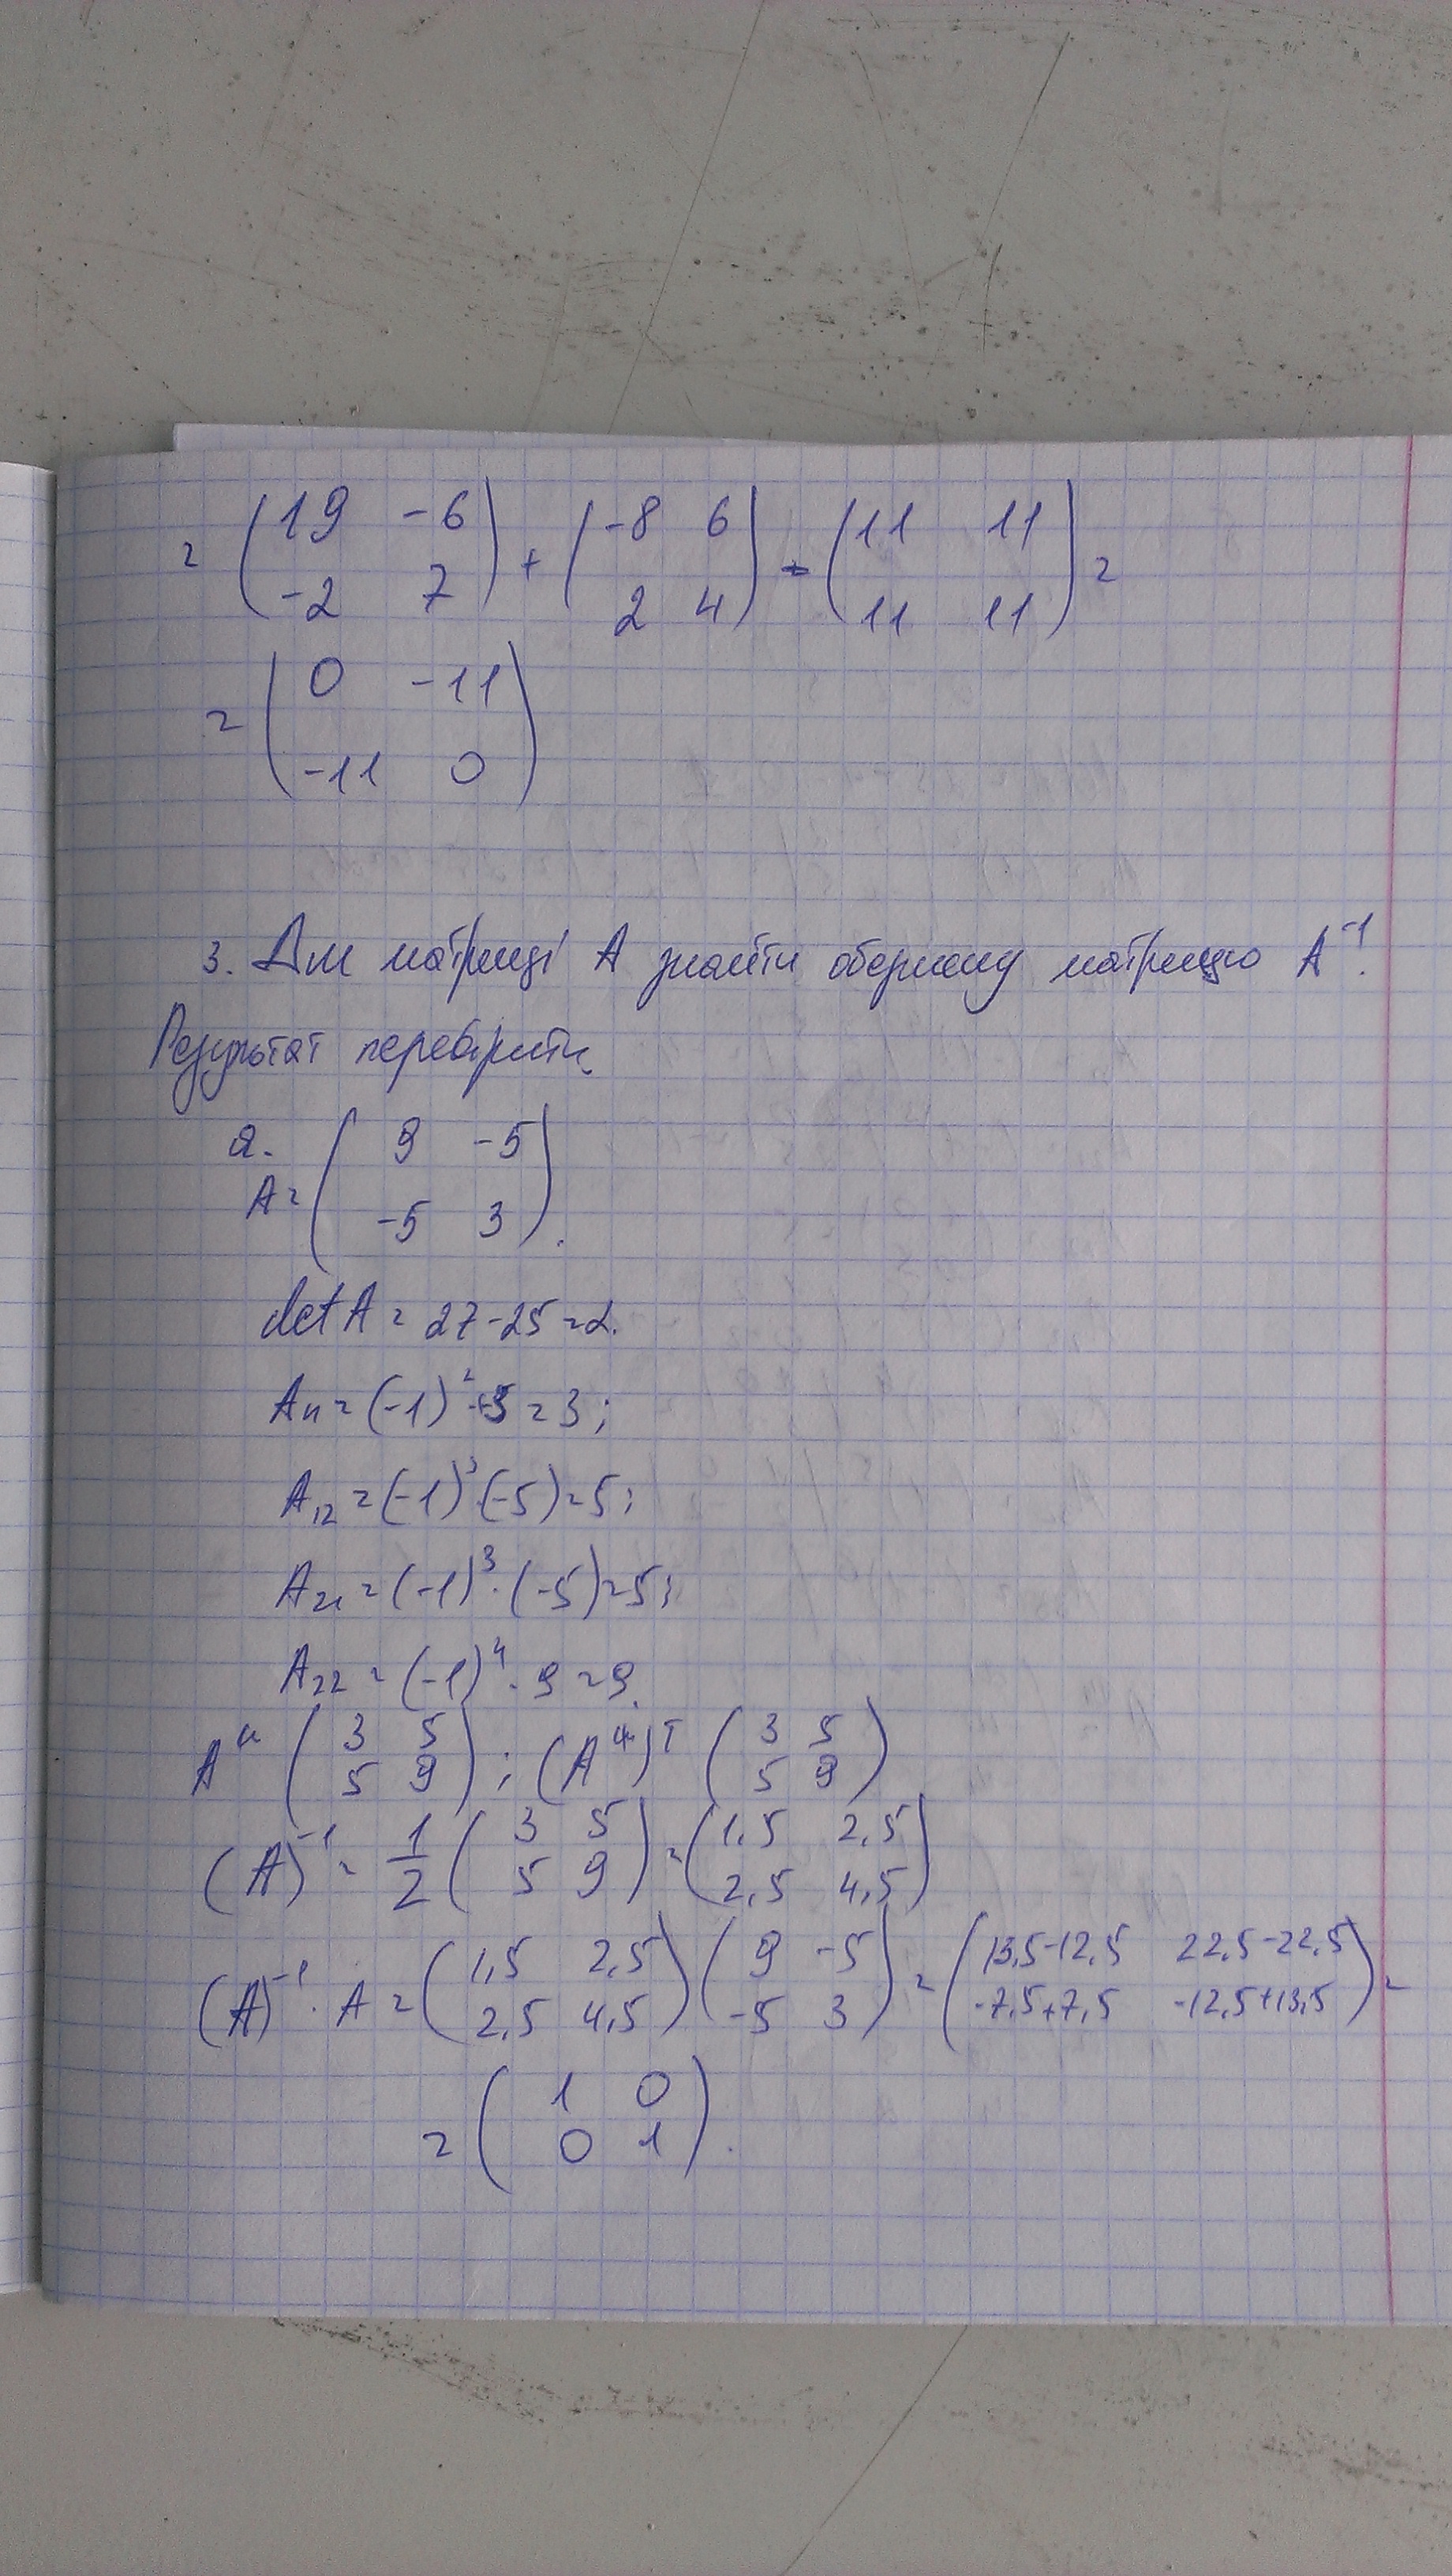 = (19 -6
-2 7) + (-8 6
2 4) - (11 11
11 11) =
= (0 -11
-11 0)
3. Для матриці A знайти обернену матрицю A⁻¹.
Результат перевірити.
а.
A = (9 -5
-5 3).
det A = 27-25=2.
A₁₁ = (-1)² · 3 = 3;
A₁₂ = (-1)³ (-5) = 5;
A₂₁ = (-1)³ · (-5) = 5;
A₂₂ = (-1)⁴ · 9 = 9.
A (3 5
5 9) ; (A )ᵀ (3 5
5 9)
(A)⁻¹ = 1/2 (3 5
5 9) = (1,5 2,5
2,5 4,5)
(A)⁻¹ · A = (1,5 2,5
2,5 4,5) (9 -5
-5 3) = (13,5-12,5 22,5-22,5
-7,5+7,5 -12,5+13,5) =
= (1 0
0 1).